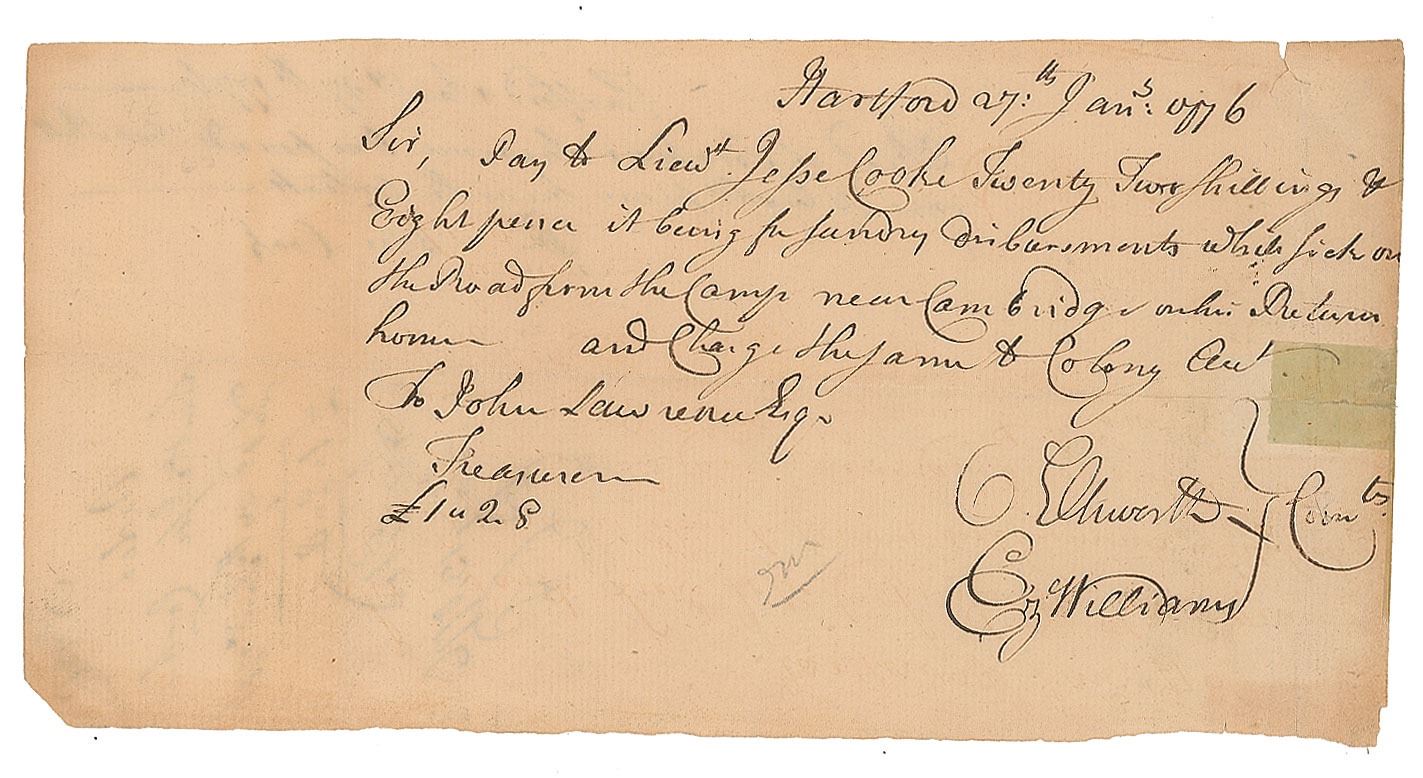 Hartford 27:th Janry: 1776
Sir, Pay to Lieut. Jesse Cooke Twenty Two shillings &
Eight pence it being for sundry disbursments while sick on
the Road from the Camp near Cambridge on his Return
home and Charge the same to Colony Act
To John Lawrence Esqr
Treasurer
£1 " 2. 8
O. Ellsworth } Comtee
Ez Williams